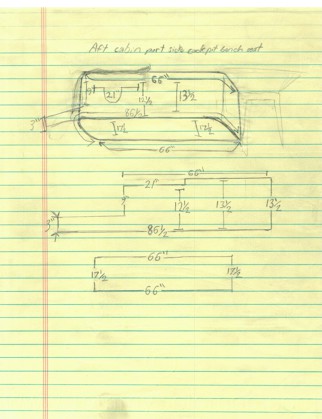 Aft cabin port side cockpit bench seat
66"
9 21" 12½ 13½
3" 86½
17½ 17½
66
66"
21"
9 12½ 13½ 13½
3" 86½
66"
17½ 17½
66"